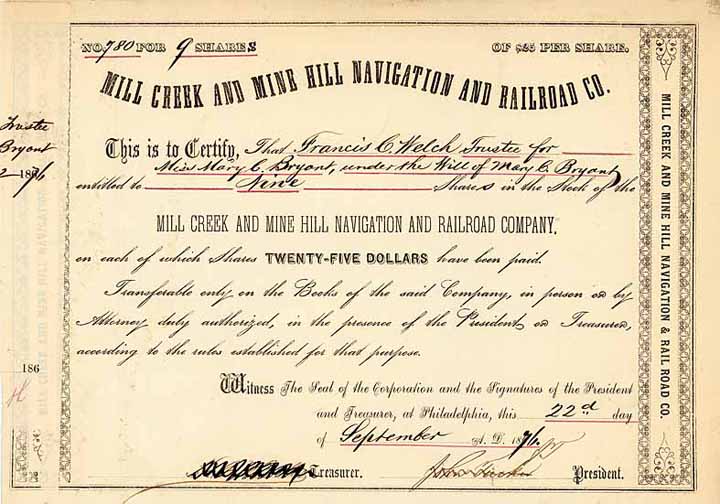 No. 780 FOR 9 SHARES OF $25 PER SHARE.
MILL CREEK AND MINE HILL NAVIGATION AND RAILROAD CO.
This is to Certify, That Francis C. Welch Trustee for
Miss Mary C. Bryant, under the Will of Mary C. Bryant
entitled to Nine Shares in the Stock of the
MILL CREEK AND MINE HILL NAVIGATION AND RAILROAD COMPANY,
on each of which Shares TWENTY-FIVE DOLLARS have been paid.
Transferable only on the Books of the said Company, in person or by
Attorney duly authorized, in the presence of the President or Treasurer,
according to the rules established for that purpose.
Witness The Seal of the Corporation and the Signatures of the President
and Treasurer, at Philadelphia, this 22d day
of September A.D. 1876.
Treasurer. President.
MILL CREEK AND MINE HILL NAVIGATION & RAIL ROAD CO.
Trustee
Bryant
1876
186